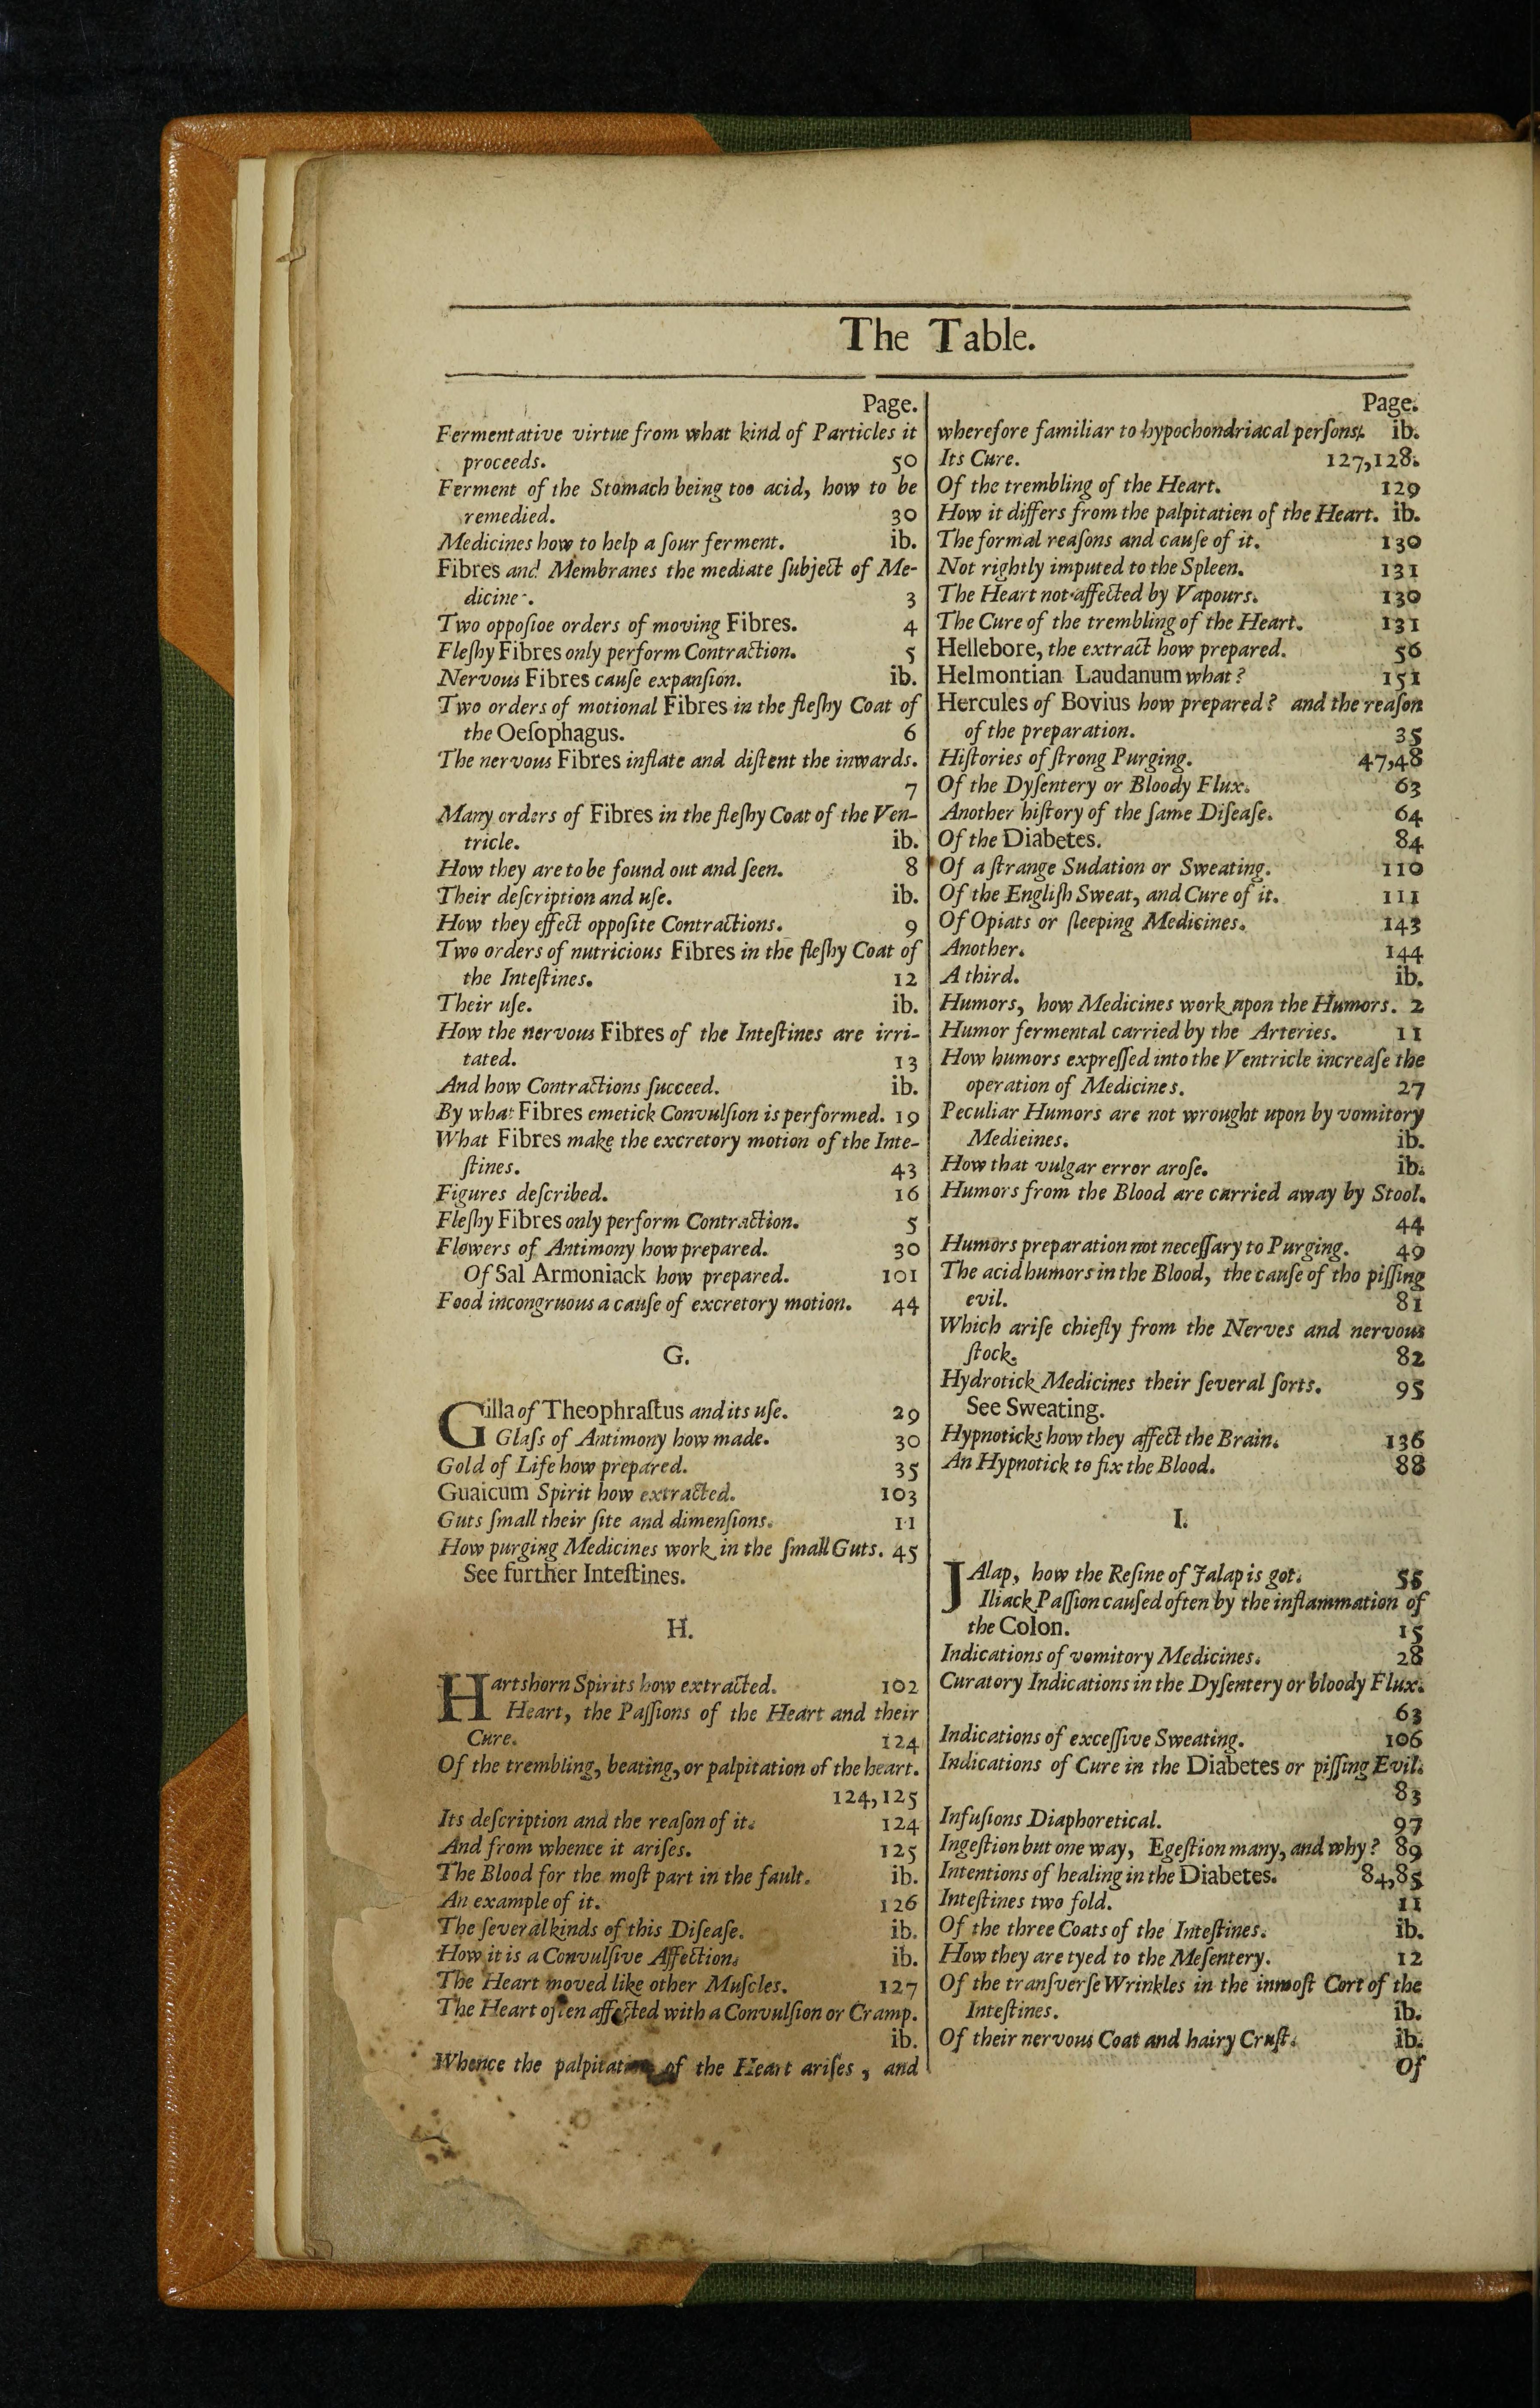 The Table.
Page.
Fermentative virtue from what kind of Particles it
proceeds. 50
Ferment of the Stomach being too acid, how to be
remedied. 30
Medicines how to help a ſour ferment. ib.
Fibres and Membranes the mediate ſubject of Me-
dicine. 3
Two oppoſioe orders of moving Fibres. 4
Fleſhy Fibres only perform Contraction. 5
Nervous Fibres cauſe expanſion. ib.
Two orders of motional Fibres in the fleſhy Coat of
the Oeſophagus. 6
The nervous Fibres inflate and diſtent the inwards.
7
Many orders of Fibres in the fleſhy Coat of the Ven-
tricle. ib.
How they are to be found out and ſeen. 8
Their deſcription and uſe. ib.
How they effect oppoſite Contractions. 9
Two orders of nutricious Fibres in the fleſhy Coat of
the Inteſtines. 12
Their uſe. ib.
How the nervous Fibres of the Inteſtines are irri-
tated. 13
And how Contractions ſucceed. ib.
By what Fibres emetick Convulſion is performed. 19
What Fibres make the excretory motion of the Inte-
ſtines. 43
Figures deſcribed. 16
Fleſhy Fibres only perform Contraction. 5
Flowers of Antimony how prepared. 30
Of Sal Armoniack how prepared. 101
Food incongruous a cauſe of excretory motion. 44
G.
Gilla of Theophraſtus and its uſe. 29
Glaſs of Antimony how made. 30
Gold of Life how prepared. 35
Guaicum Spirit how extracted. 103
Guts ſmall their ſite and dimenſions. 11
How purging Medicines work in the ſmall Guts. 45
See further Inteſtines.
H.
Hartshorn Spirits how extracted. 102
Heart, the Paſſions of the Heart and their
Cure. 124
Of the trembling, beating, or palpitation of the heart.
124,125
Its deſcription and the reaſon of it. 124
And from whence it ariſes. 125
The Blood for the moſt part in the fault. ib.
An example of it. 126
The ſeveral kinds of this Diſeaſe. ib.
How it is a Convulſive Affection. ib.
The Heart moved like other Muſcles. 127
The Heart often affected with a Convulſion or Cramp.
ib.
Whence the palpitation of the Heart ariſes, and
Page.
wherefore familiar to hypochondriacal perſons. ib.
Its Cure. 127,128.
Of the trembling of the Heart. 129
How it differs from the palpitatien of the Heart. ib.
The formal reaſons and cauſe of it. 130
Not rightly imputed to the Spleen. 131
The Heart not affected by Vapours. 130
The Cure of the trembling of the Heart. 131
Hellebore, the extract how prepared. 56
Helmontian Laudanum what? 151
Hercules of Bovius how prepared? and the reaſon
of the preparation. 35
Hiſtories of ſtrong Purging. 47,48
Of the Dyſentery or Bloody Flux. 63
Another hiſtory of the ſame Diſeaſe. 64
Of the Diabetes. 84
Of a ſtrange Sudation or Sweating. 110
Of the Engliſh Sweat, and Cure of it. 111
Of Opiats or ſleeping Medicines. 143
Another. 144
A third. ib.
Humors, how Medicines work upon the Humors. 2
Humor fermental carried by the Arteries. 11
How humors expreſſed into the Ventricle increaſe the
operation of Medicines. 27
Peculiar Humors are not wrought upon by vomitory
Medieines. ib.
How that vulgar error aroſe. ib.
Humors from the Blood are carried away by Stool.
44
Humors preparation not neceſſary to Purging. 49
The acid humors in the Blood, the cauſe of tho piſſing
evil. 81
Which ariſe chiefly from the Nerves and nervous
ſtock. 82
Hydrotick Medicines their ſeveral ſorts. 95
See Sweating.
Hypnoticks how they affect the Brain. 136
An Hypnotick to fix the Blood. 88
I.
JAlap, how the Reſine of Jalap is got. 55
Iliack Paſſion cauſed often by the inflammation of
the Colon. 15
Indications of vomitory Medicines. 28
Curatory Indications in the Dyſentery or bloody Flux.
63
Indications of exceſſive Sweating. 106
Indications of Cure in the Diabetes or piſſing Evil.
83
Infuſions Diaphoretical. 97
Ingeſtion but one way, Egeſtion many, and why? 89
Intentions of healing in the Diabetes. 84,85
Inteſtines two fold. 11
Of the three Coats of the Inteſtines. ib.
How they are tyed to the Meſentery. 12
Of the tranſverſe Wrinkles in the inmoſt Cort of the
Inteſtines. ib.
Of their nervous Coat and hairy Cruſt. ib.
Of